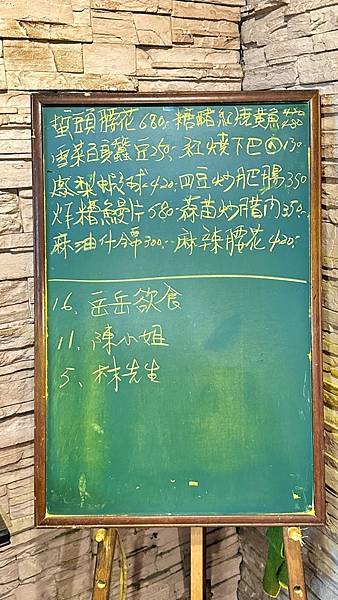 蜇頭腰花680.糖醋紅鹿魚420 480
雪菜白蠶豆350.紅燒下巴大130
鳳梨蝦球420.四豆炒肥腸350
炸糟鰻片580.蒜苗炒腊肉350.
麻油什錦300.麻辣腰花420.
16、岳岳欲食
11、陳小姐
5、林先生